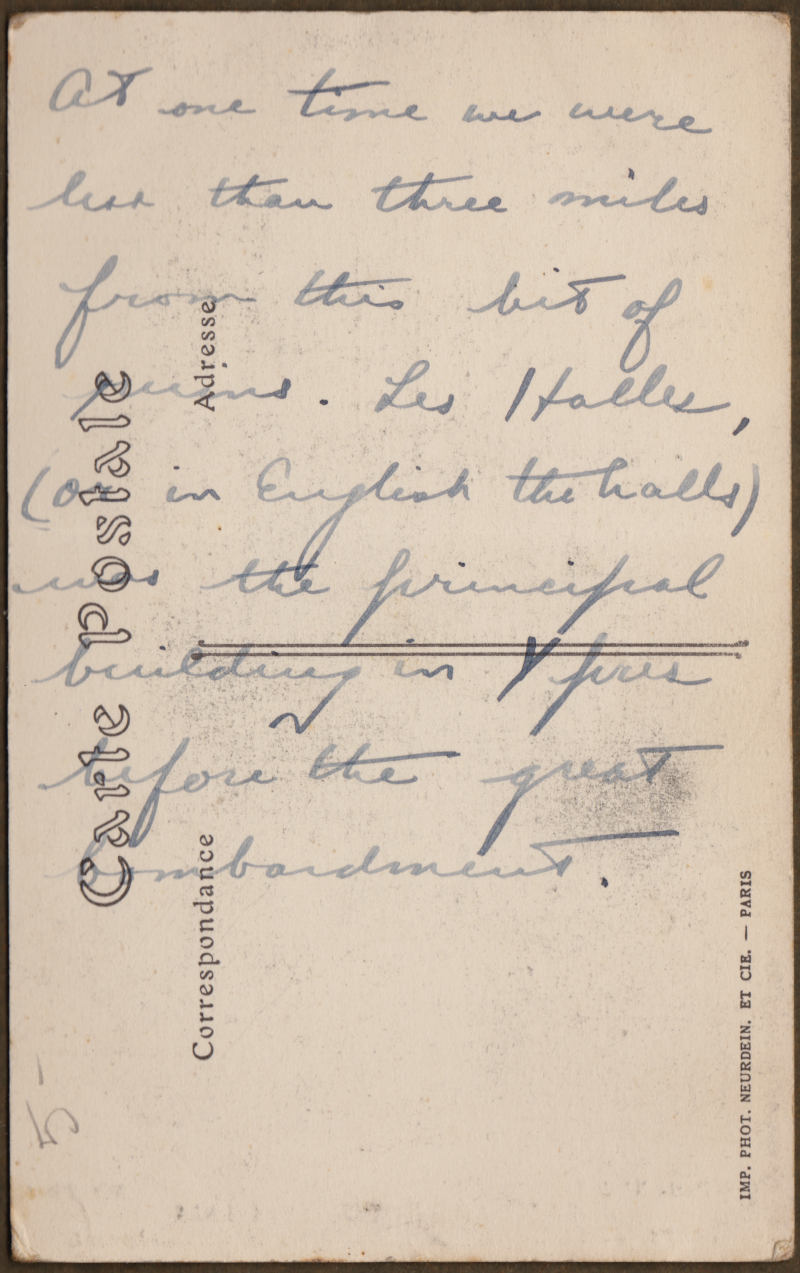 At one time we were
less than three miles
from this bit of
ruins. Les Halles,
(or in English the halls)
was the principal
building in Ypres
before the great
bombardment.
Carte Postale
Adresse
Correspondance
IMP. PHOT. NEURDEIN. ET CIE. — PARIS
5-